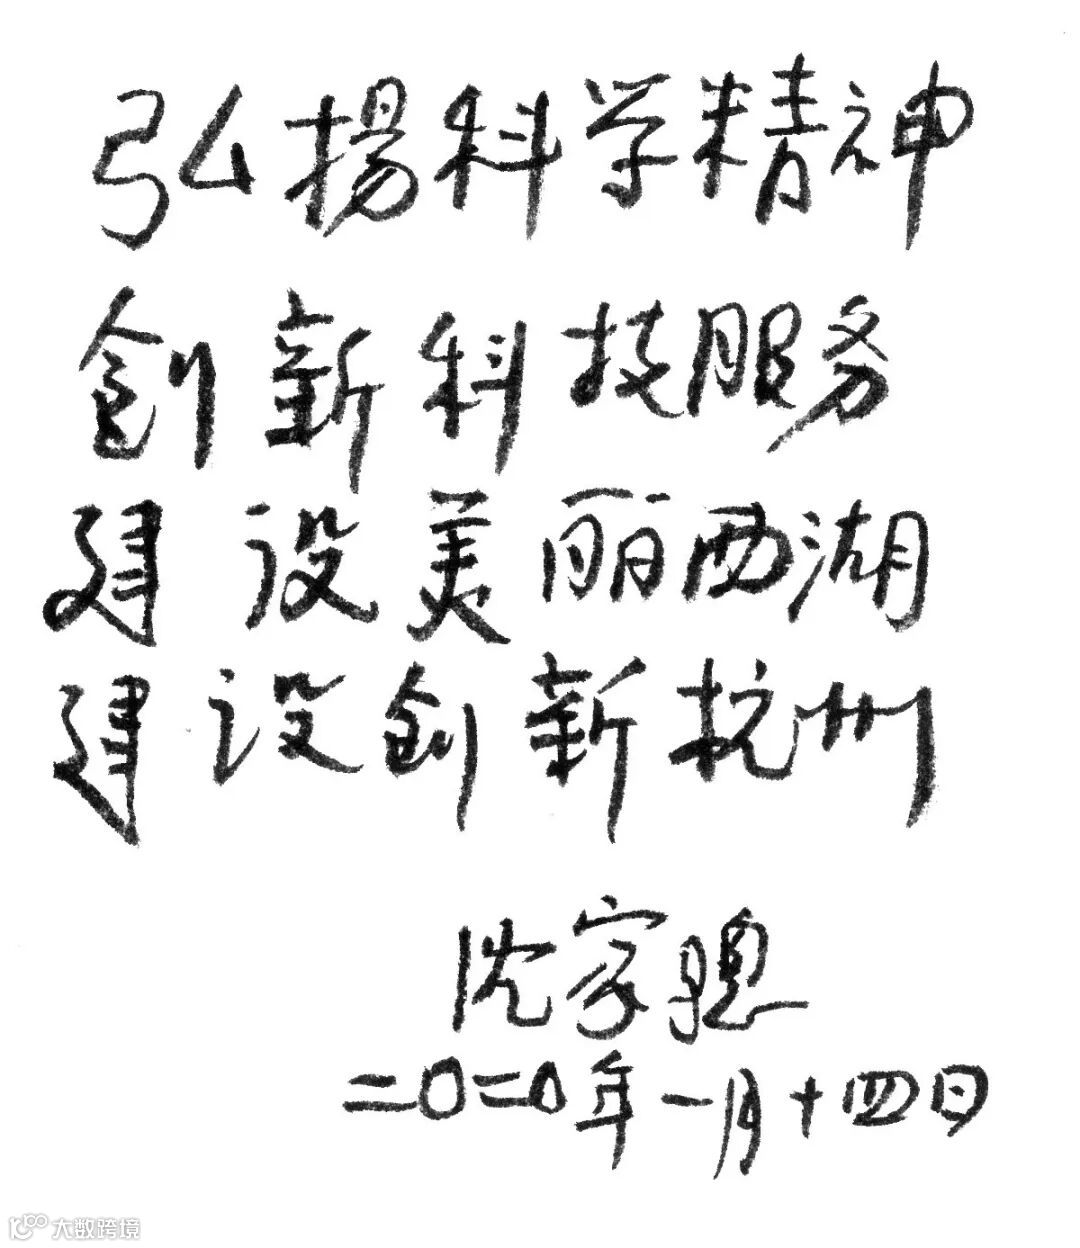 弘揚科学精神
创新科技服务
建设美丽西湖
建设创新杭州
沈家骢
二〇二〇年一月十四日
大数跨境